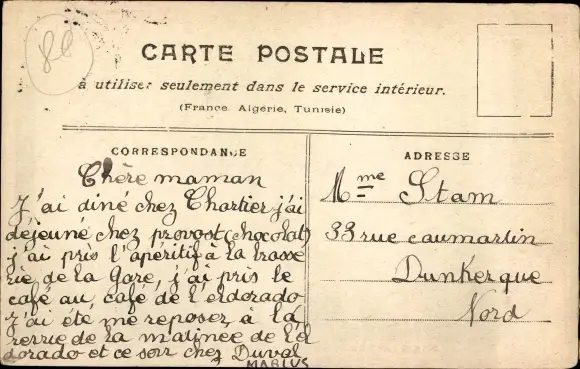 88
CARTE POSTALE
à utiliser seulement dans le service intérieur.
(France, Algérie, Tunisie)
CORRESPONDANCE
Chère maman
J'ai diné chez Chartier j'ai
déjeuné chez provost (chocolat)
j'ai pris l'apéritif à la brasse
rie de la Gare, j'ai pris le
café au café de l'eldorado
J'ai été me reposer à la
de la matinee de l'el
dorado et ce soir chez Duval
MARIUS
ADRESSE
Mme Stam
33 rue caumartin
Dunkerque
Nord